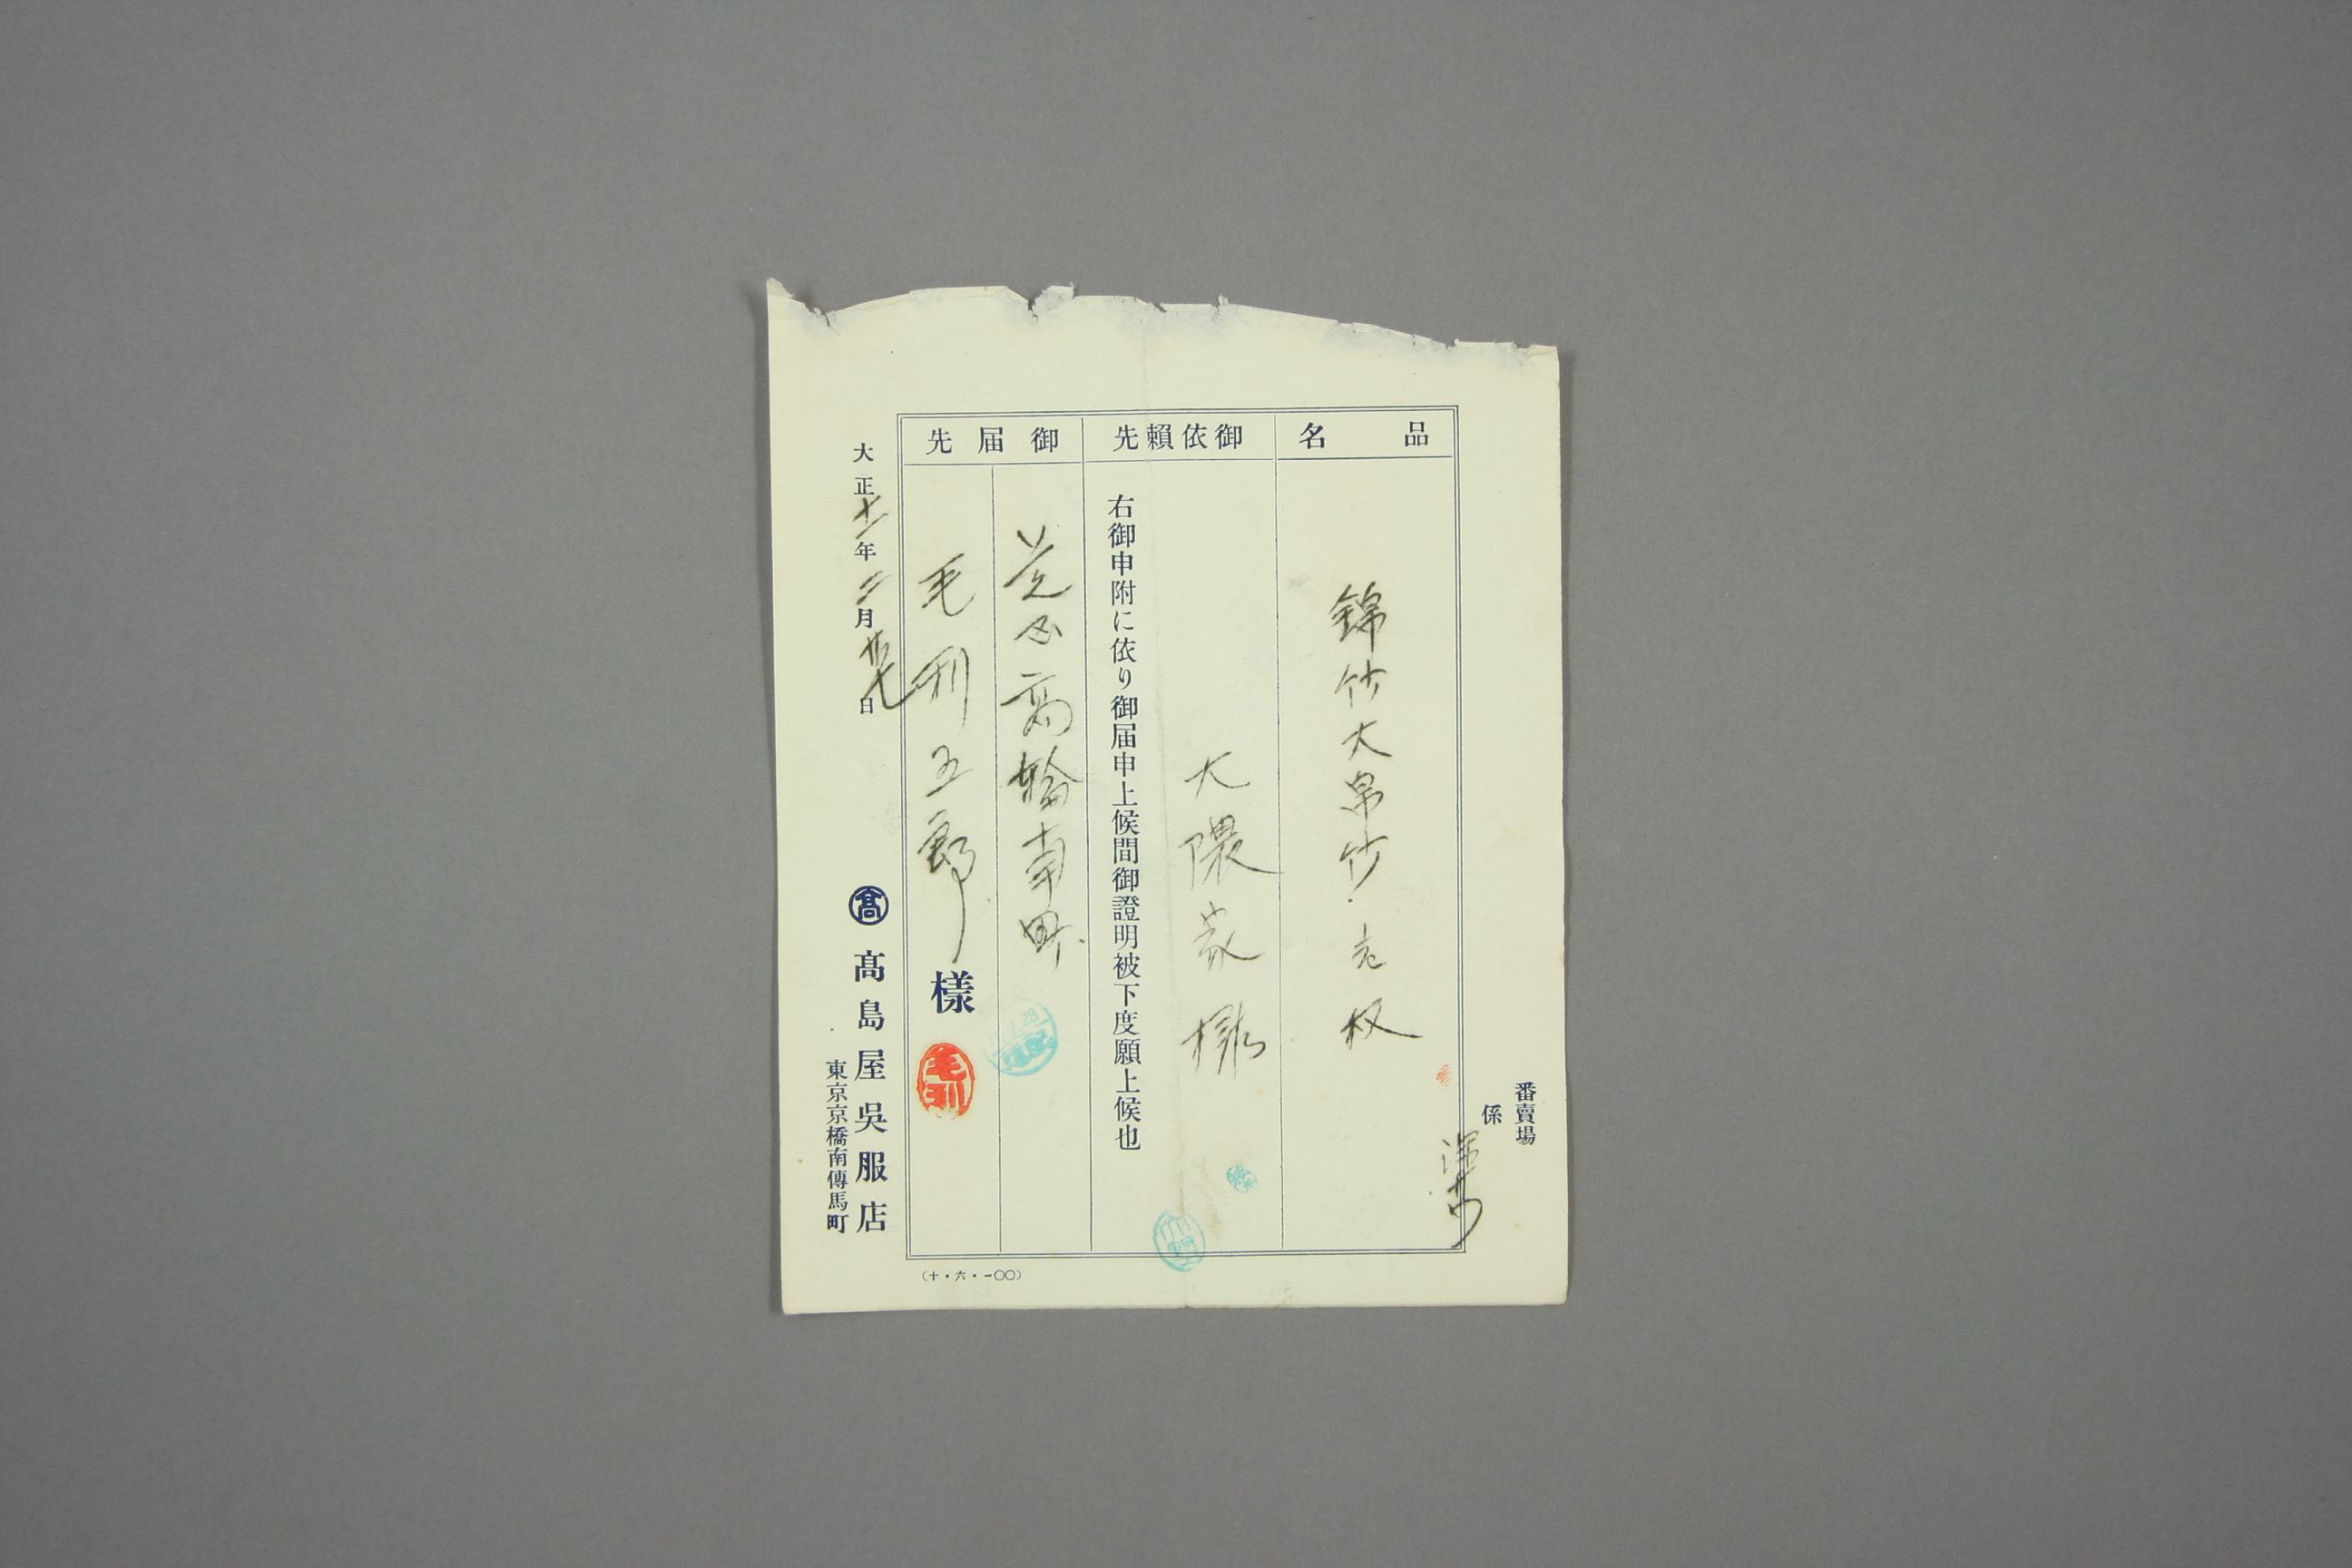 番賣場
係
品名
錦紗大帛紗 壱枚
御依賴先
大隈家様
右御申附に依り御届申上候間御證明被下度願上候也
御届先
芝区高輪南町
毛利五郎様
毛利
大正十一年二月廿七日
髙
髙島屋吳服店
東京京橋南傳馬町
(十・六・一〇〇)